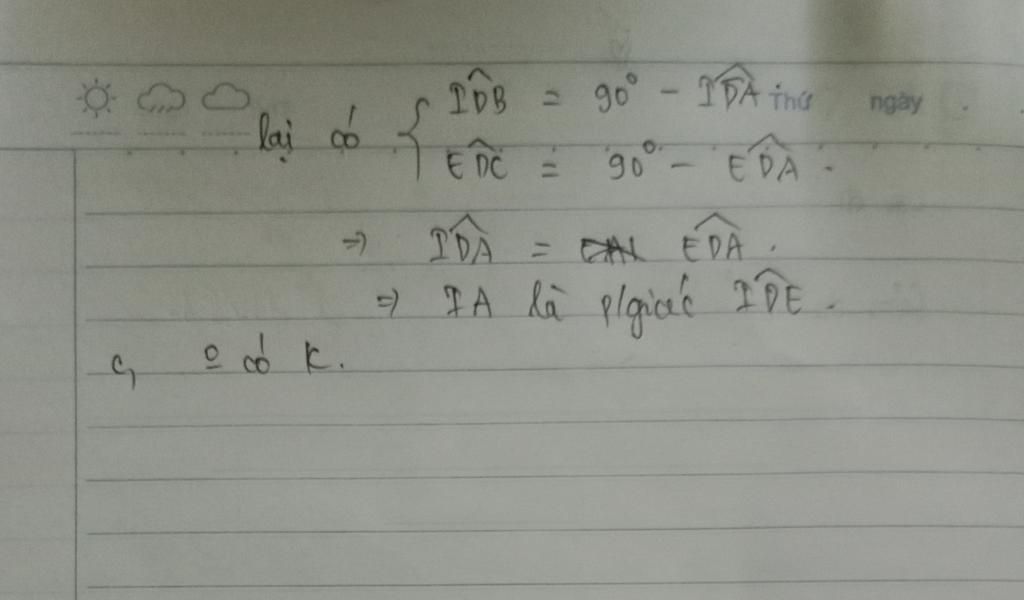 Thứ ngày
lại có { ID̂B = 90° - ID̂A
ED̂C = 90° - ED̂A.
=> ID̂A = ED̂A.
=> IA là p/giác ID̂E.
c, có K.